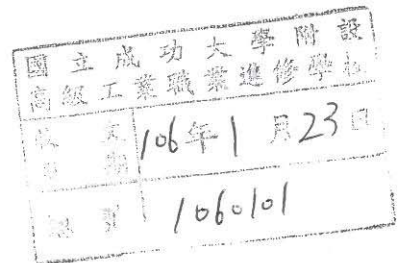 國立成功大學附設
高級工業職業進修學校
收文日期 106年1月23日
1060101